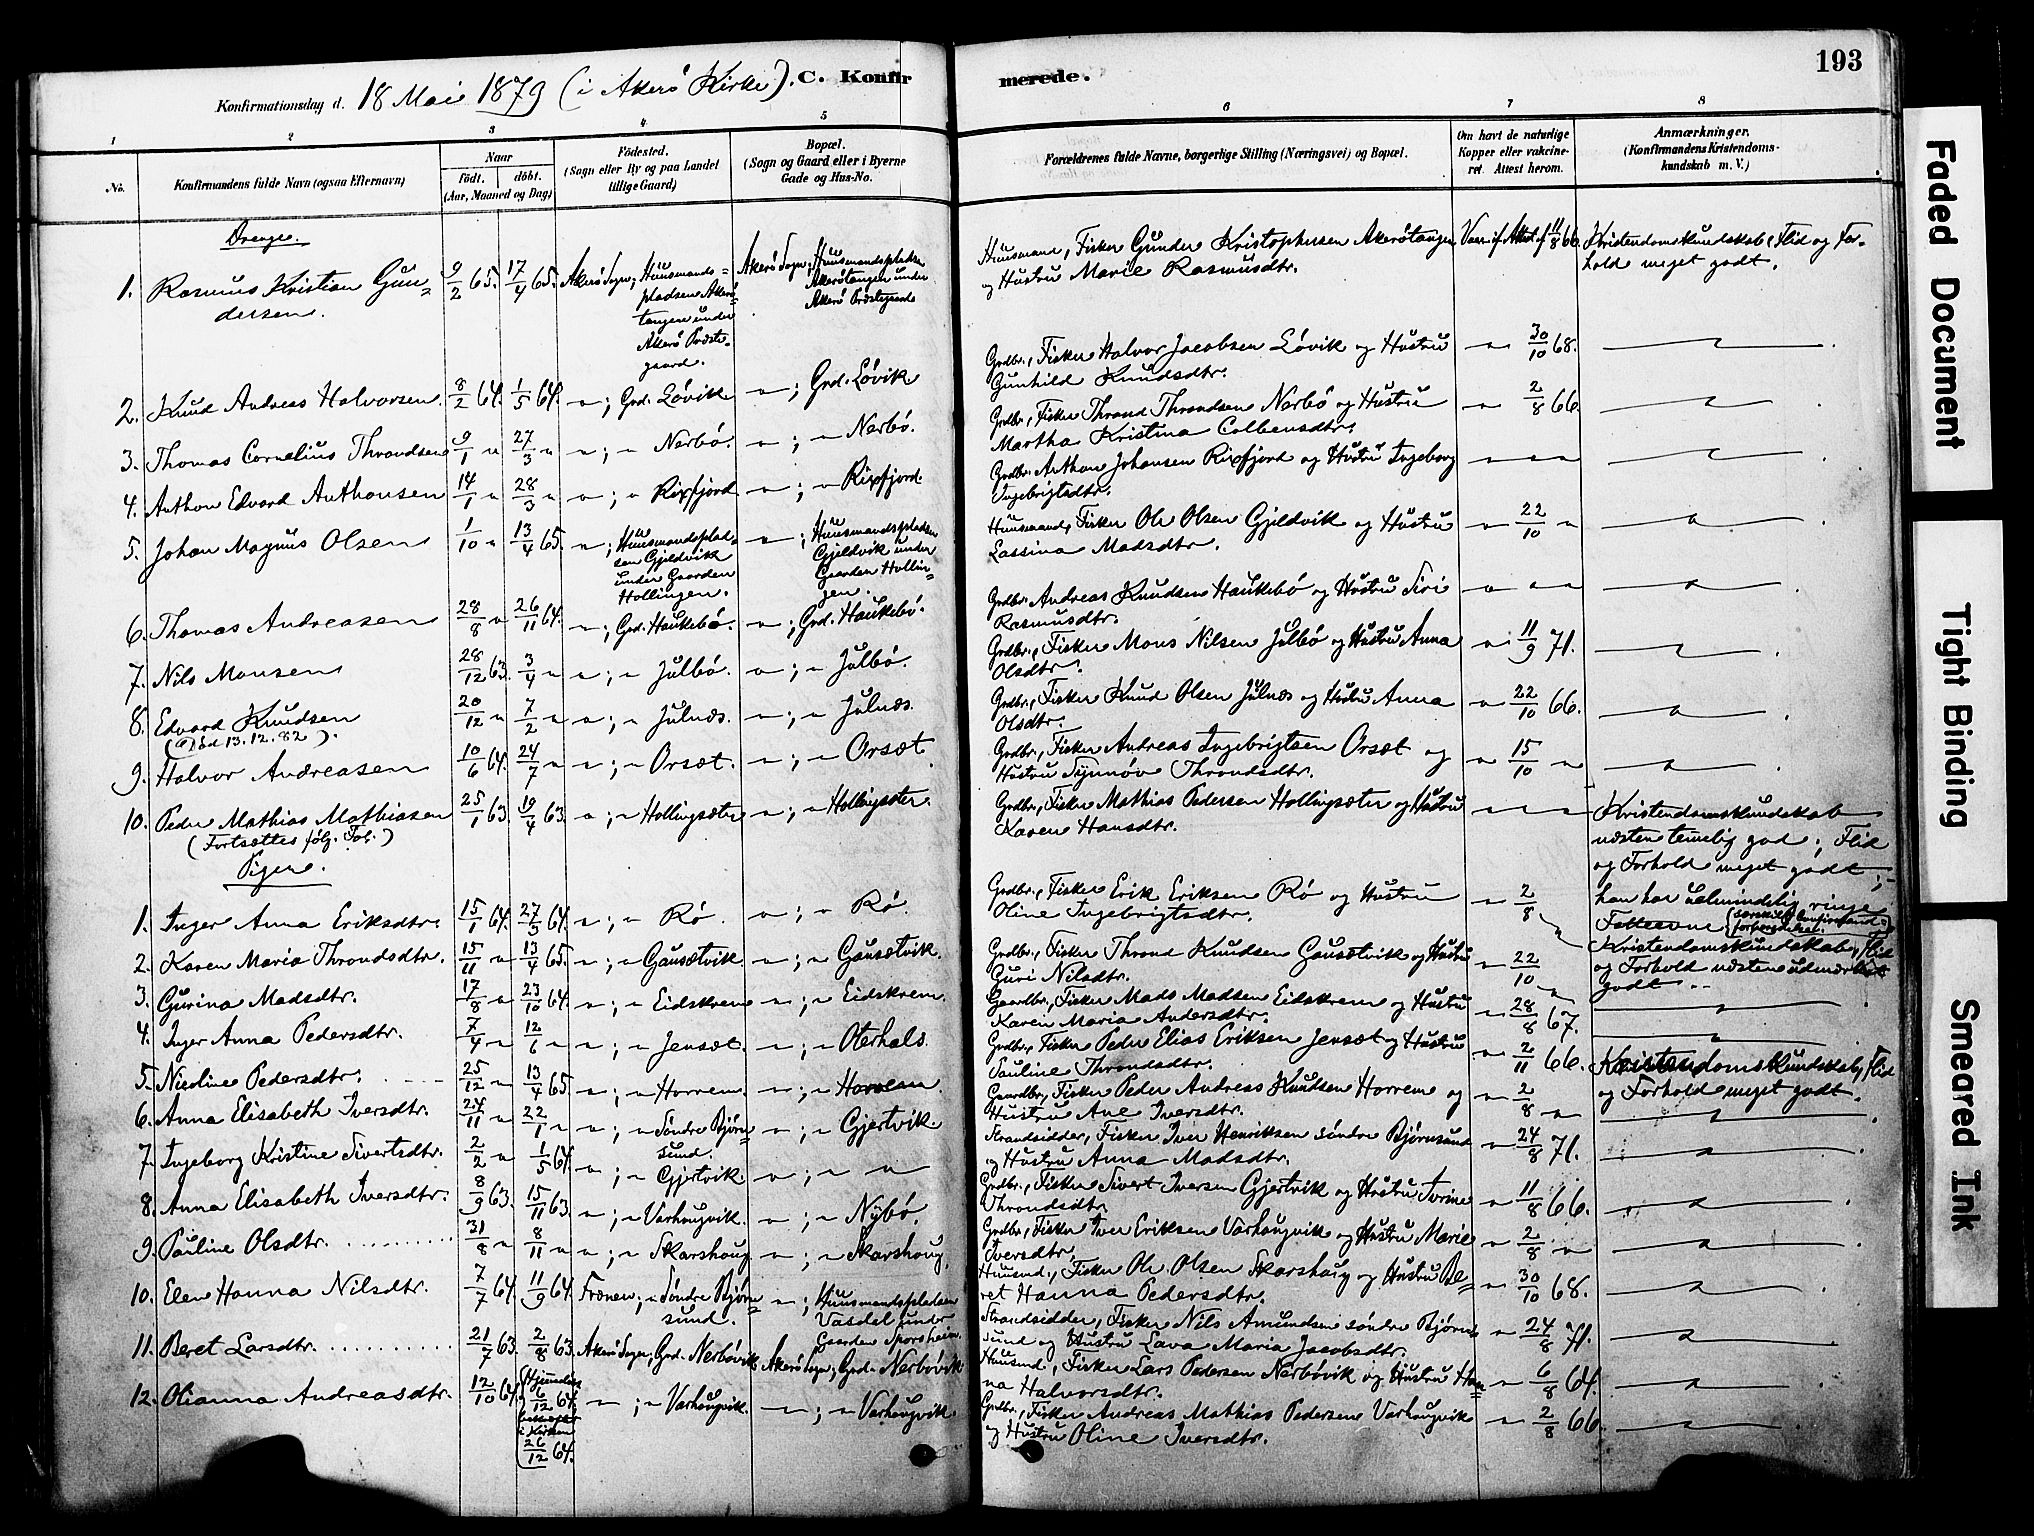 193
Konfirmationsdag d. 18 Mai 1879 (i Akerö Kirke). C. Konfirmerede.
1 2 3 4 5 6 7 8
No.
Konfirmandens fulde Navn (ogsaa Efternavn)
Naar
födt. döbt.
(Aar, Maaned og Dag)
Födested.
(Sogn eller By og paa Landet
tillige Gaard)
Bopæl.
(Sogn og Gaard eller i Byerne
Gade og Hus-No.
Forældrenes fulde Navne, borgerlige Stilling (Næringsvei) og Bopæl.
Om havt de naturlige
Kopper eller vakcine-
ret. Attest herom.
Anmærkninger.
(Konfirmandens Kristendoms-
kundskab m. V.)
Drenge.
1. Rasmus Kristian Gun-
dersen. 9/2 65. 17/4 65. Akerö Sogn; Huusmands-
pladsen Akerö-
tangen under
Akerö Præste-
gaard.
Akerö Sogn; Huusmandspladsen
Akerötangen under
Akerö Præstegaard
Huusmand, Fisker Gunder Kristophersen Akerötangen
og Hustru Marie Rasmusdtr.
Vacc. if. Attest af 11/8 66.
Kristendomskundskab, Flid og For-
hold meget godt.
2. Knud Andreas Halvorsen. 8/2 64. 1/5 64. " ; Grd. Lövik. " ; Grd. Lövik
Grdbr., Fisker Halvor Jacobsen Lövik og Hustru
Gunhild Knudsdtr. " 30/10 68. "
3. Thomas Cornelius Throndsen 9/1 " 27/3 " " ; " Nerbö. " ; " Nerbö.
Grdbr., Fisker Thrond Throndsen Nerbö og Hustru
Martha Kristina Colbensdtr. " 2/8 66. "
4. Anthon Edvard Anthonsen 14/1 " 28/3 " " ; " Rixfjord " ; " Rixfjord.
Grdbr. Anthon Johansen Rixfjord og Hustru Ingeborg
Ingebrigtsdtr. " " " "
5. Johan Magnus Olsen 1/10 " 13/4 65. " ; Huusmandsplad-
sen Gjeldvik
under Gaarden
Hollingen.
" ; Huusmandspladsen
Gjeldvik under
Gaarden Hollin-
gen.
Huusmand, Fisker Ole Olsen Gjeldvik og Hustru
Lassina Madsdtr. " 22/10 " "
6. Thomas Andreasen 28/8 " 26/11 64. " ; Grd. Haukebö. " ; Grd. Haukebö.
Grdbr. Andreas Knudsen Haukebö og Hustru Siri
Rasmusdtr. " " " "
7. Nils Monsen 28/12 63. 3/4 " " ; " Julbö. " ; " Julbö.
Grdbr., Fisker Mons Nilsen Julbö og Hustru Anna
Olsdtr. " 11/9 71. "
8. Edvard Knudsen 20/12 " 7/2 " " ; " Julnæs. " ; " Julnæs.
(Död 13.12.82).
Grdbr., Fisker Knud Olsen Julnæs og Hustru Anna
Olsdtr. " 22/10 66. "
9. Halvor Andreasen 10/6 64. 24/7 " " ; " Orsæt. " ; " Orsæt.
Grdbr., Fisker Andreas Ingebrigtsen Orsæt og
Hustru Synnöv Throndsdtr. " 15/10 " "
10. Peder Mathias Mathiasen 25/1 63. 19/4 63. " ; " Hollingsæter " ; " Hollingsæter.
(Fortsættes følg. Fol.)
Grdbr., Fisker Mathias Pedersen Hollingsæter og Hustru
Karen Hansdtr. " " "
Kristendomskundskab
næsten temelig god; Flid
og Forhold meget godt;-
han har ualmindelig ringe
Fatteevne
Pigen.
1. Inger Anna Eriksdtr. 15/1 64. 27/3 64. " ; " Rö. " ; " Rö.
Grdbr., Fisker Erik Eriksen Rö og Hustru
Oline Ingebrigtsdtr. " 2/8 "
Kristendomskundskab, Flid
og Forhold næsten udmærket
godt.
2. Karen Maria Throndsdtr. 15/11 " 13/4 65. " ; " Gausetvik " ; " Gausetvik.
Grdbr., Fisker Thrond Knudsen Gausetvik og Hustru
Guri Nilsdtr. " 22/10 " "
3. Gurina Madsdtr. 17/8 " 23/10 64. " ; " Eidskrem " ; " Eidskrem.
Gaardbr., Fisker Mads Madsen Eidskrem og Hustru
Karen Maria Andersdtr. " 28/8 67. "
4. Inger Anna Pedersdtr. 7/4 " 12/6 " " ; " Jensæt. " ; " Oterhals.
Grdbr., Fisker Peder Elias Eriksen Jensæt og Hustru
Pauline Throndsdtr. " 2/11 66.
Kristendomskundskab, Flid
og Forhold meget godt.
5. Nicoline Pedersdtr. 25/12 " 13/4 65. " ; " Horrem. " ; " Horrem
Gaardbr., Fisker Peder Andreas Knutsen Horrem og
Hustru Ane Iversdtr. " 2/8 " "
6. Anna Elisabeth Iversdtr. 24/11 " 22/1 " " ; " Söndre Björn-
sund. " ; " Gjertvik.
Strandsidder, Fisker Iver Henriksen söndre Björnsund
og Hustru Anna Madsdtr. " 24/8 71. "
7. Ingeborg Kristine Sivertsdtr. 2/2 " 1/5 64. " ; " Gjertvik. " ; " "
Grdbr., Fisker Sivert Iversen Gjertvik og Hustru Sirine
Throndsdtr. " 11/8 66. "
8. Anna Elisabeth Iversdtr. 8/9 63. 15/11 63. " ; " Varhougvik. " ; " Nybö.
Grdbr., Fisker Iver Eriksen Varhougvik og Hustru Marie
Iversdtr. " 2/8 " "
9. Pauline Olsdtr. 31/8 " 8/11 " " ; " Skarshoug " ; " Skarshoug.
Huusmd., Fisker Ole Olsen Skarshoug og Hustru Be-
ret Hanna Pedersdtr. " 30/10 68. "
10. Elen Hanna Nilsdtr. 7/7 64. 11/9 64. Frænen; " Söndre Björn-
sund. " ; Huusmandspladsen
Vasdal under
Gaarden Sporsheim.
Strandsidder, Fisker Nils Amundsen söndre Björn-
sund og Hustru Lava Maria Jacobsdtr. " 24/8 71. "
11. Beret Larsdtr. 21/7 63. 2/8 63. Akerö Sogn; Grd. Nerbövik. Akerö Sogn; Grd. Nerbövik
Huusmd., Fisker Lars Pedersen Nerbövik og Hustru Han-
na Halvorsdtr. " 6/8 64. "
12. Olianna Andreasdtr. 12/10 64. (Hjemdöbt
6/12 64.
i Kirken
26/12 64. " ; " Varhougvik. " ; " Varhougvik.
Grdbr., Fisker Andreas Mathias Pedersen Varhougvik
og Hustru Oline Iversdtr. " 2/8 66. "
Faded Document
Tight Binding
Smeared Ink